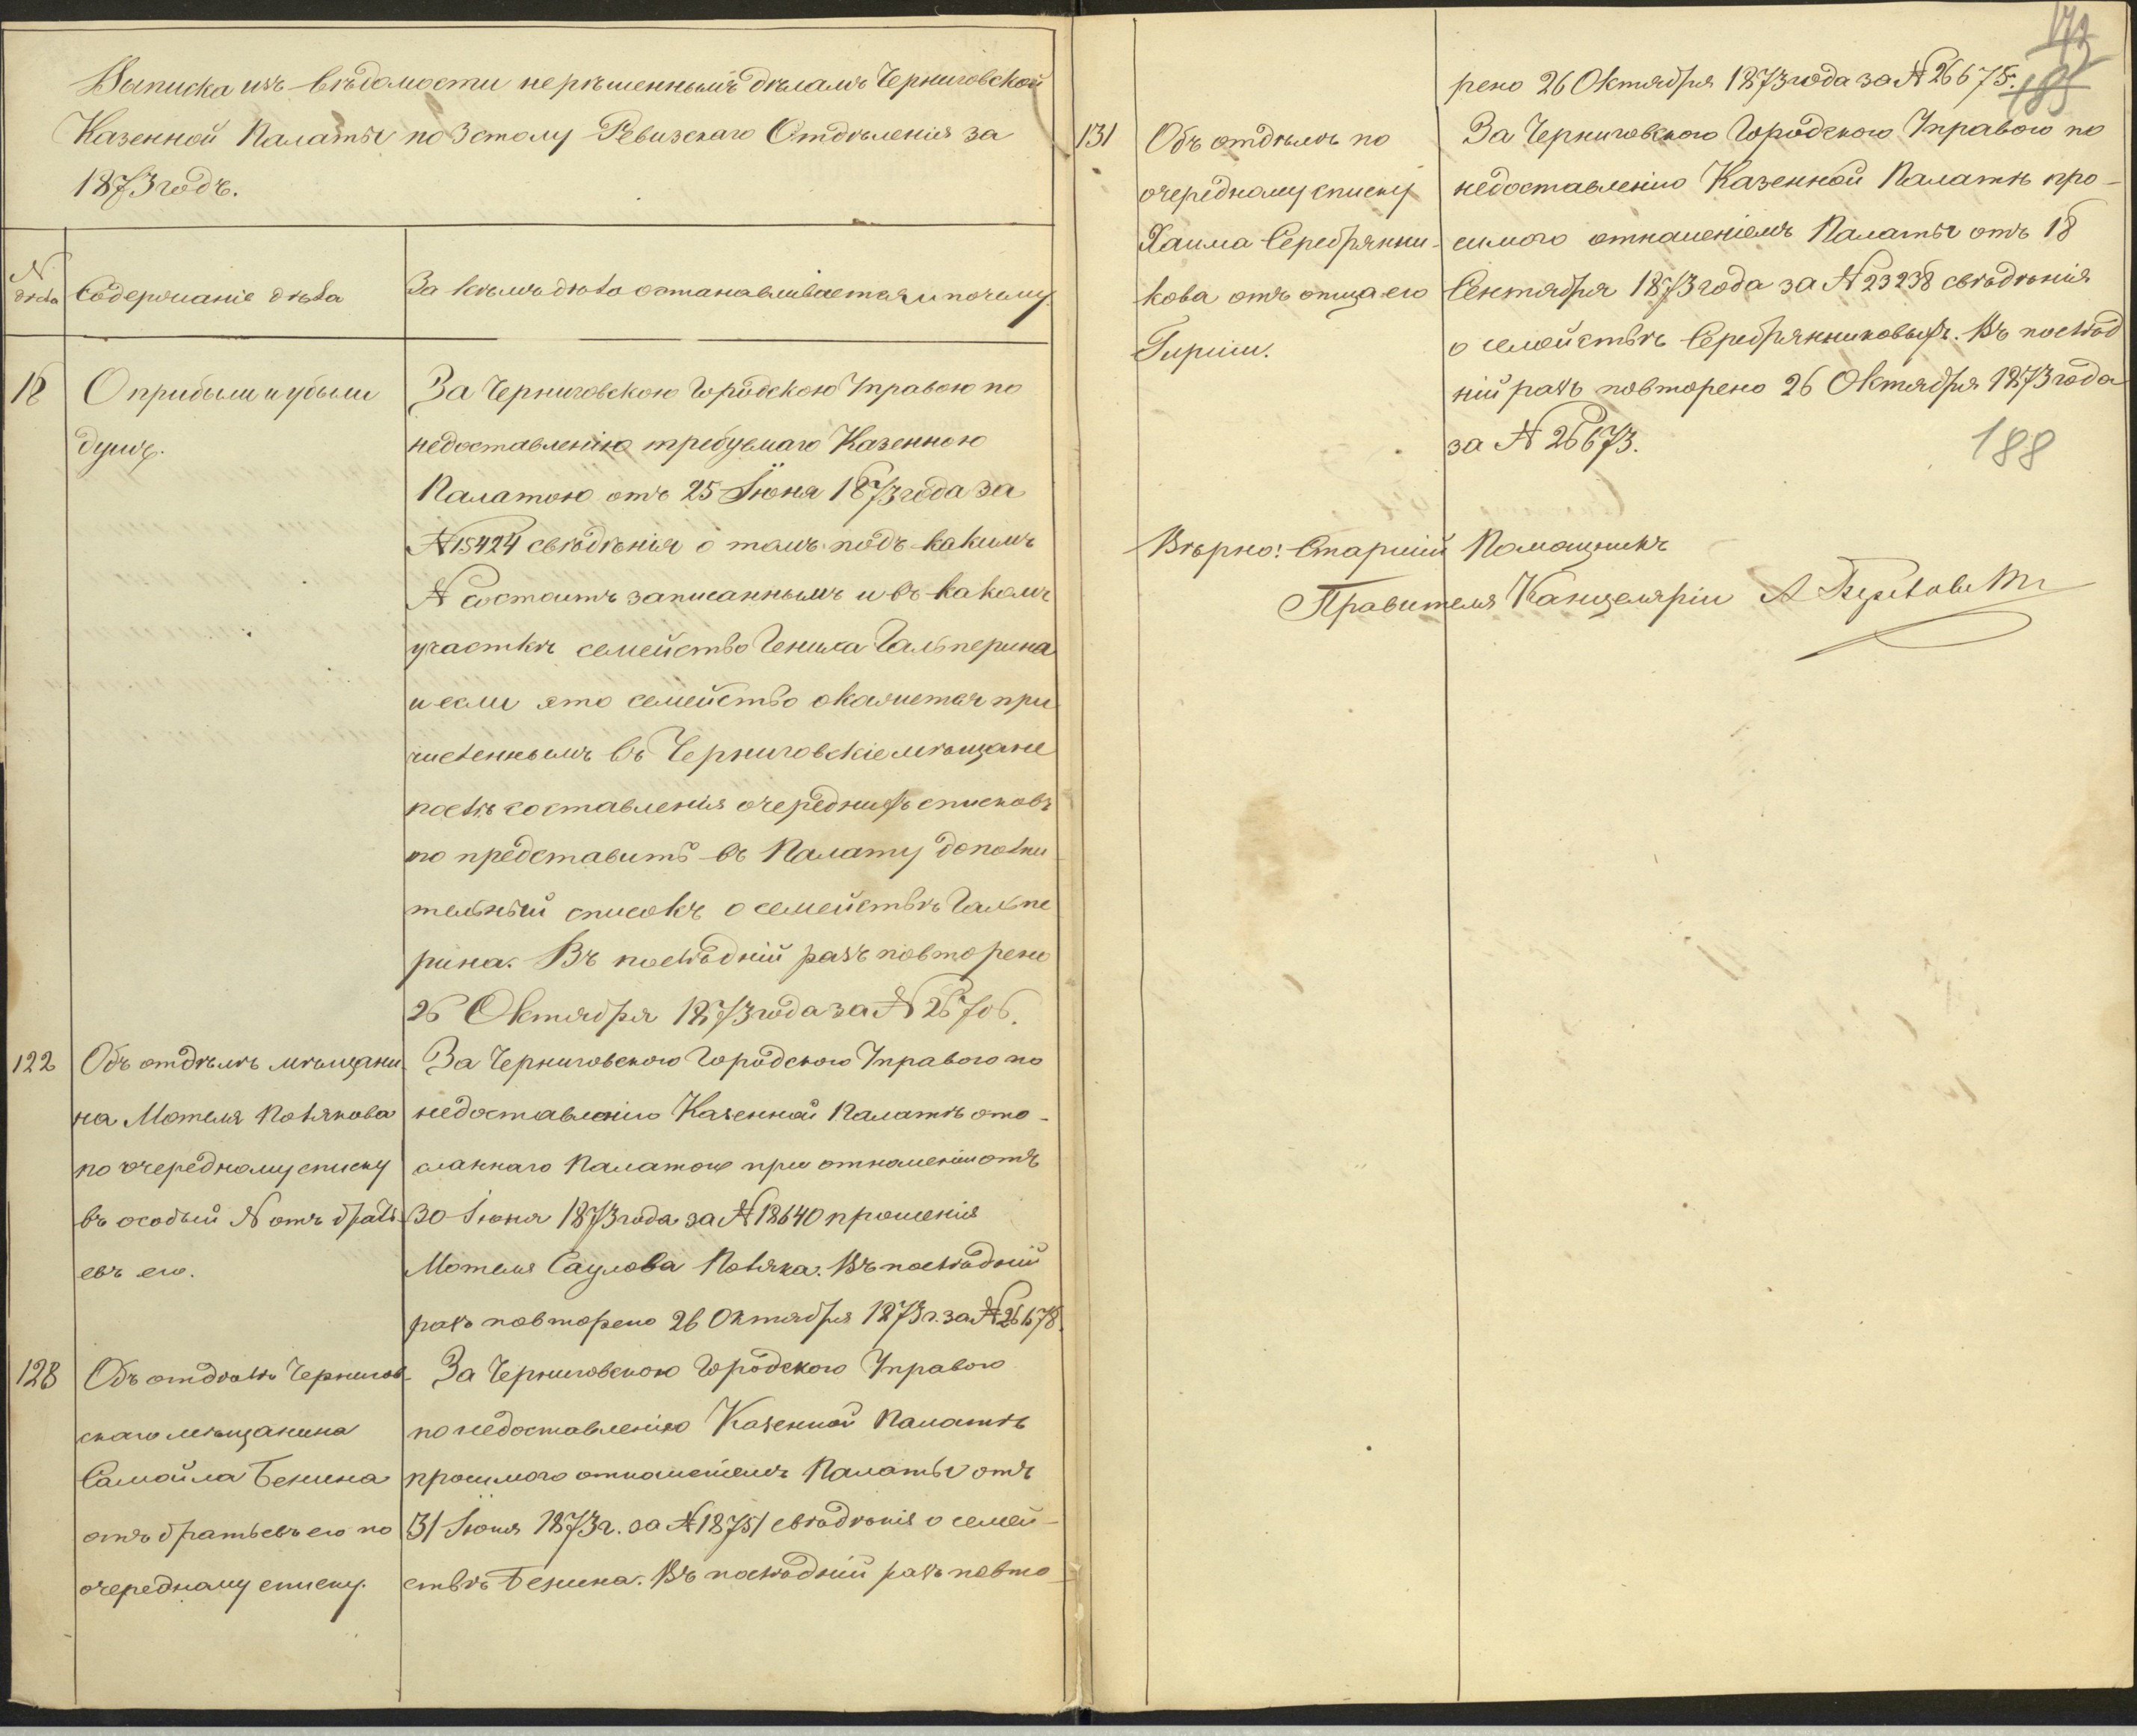 Выписка изъ вѣдомости нерѣшеннымъ дѣламъ Черниговской
Казенной Палаты по 3 столу Ревизскаго Отдѣленія за
1873 годъ.
N дѣла
Содержаніе дѣла
За кѣмъ дѣло останавливается и почему
18
О прибыли и убыли
душъ.
За Черниговскою Городскою Управою по
недоставленію требуемаго Казенною
Палатою отъ 25 Іюня 1873 года за
N 15424 свѣдѣнія о томъ подъ какимъ
N состоитъ записаннымъ и въ какомъ
участкѣ семейство Гениха Гальперина
и если это семейство окажется при
численнымъ въ Черниговскіе мѣщане
послѣ составленія очередныхъ списковъ
то представитъ въ Палату дополни
тельный списокъ о семействѣ Гальпе
рина. Въ послѣдній разъ повторено
26 Октября 1873 года за N 26706.
122
Объ отдѣлѣ мѣщани-
на Мотеля Полякова
по очередному списку
въ особый N отъ брать-
евъ его.
За Черниговскою Городскою Управою по
недоставленію Казенной Палатѣ ото-
сланнаго Палатою при отношеніи отъ
30 Іюня 1873 года за N 18640 прошенія
Мотеля Саулова Поляка. Въ послѣдній
разъ повторено 26 Октября 1873 г. за N 26678.
128
Объ отдѣлѣ Чернигов-
скаго мѣщанина
Самойла Бенина
отъ братьевъ его по
очередному списку.
За Черниговскою Городскою Управою
по недоставленію Казенной Палатѣ
просимого отношеніемъ Палаты отъ
31 Іюля 1873 г. за N 18751 свѣдѣнія о семей-
ствѣ Бенина. Въ послѣдній разъ повто-
рено 26 Октября 1873 года за N 26675.
185
131
Объ отдѣлѣ по
очередному списку
Хаима Серебрянни-
кова отъ отца его
Гирши.
За Черниговскою Городскою Управою по
недоставленію Казенной Палатѣ про-
симого отношеніемъ Палаты отъ 18
Сентября 1873 года за N 23238 свѣдѣнія
о семействѣ Серебрянниковыхъ. Въ послѣд
ній разъ повторено 26 Октября 1873 года
за N 26673.
188
Вѣрно: Старшій Помощникъ
Правителя Канцеляріи